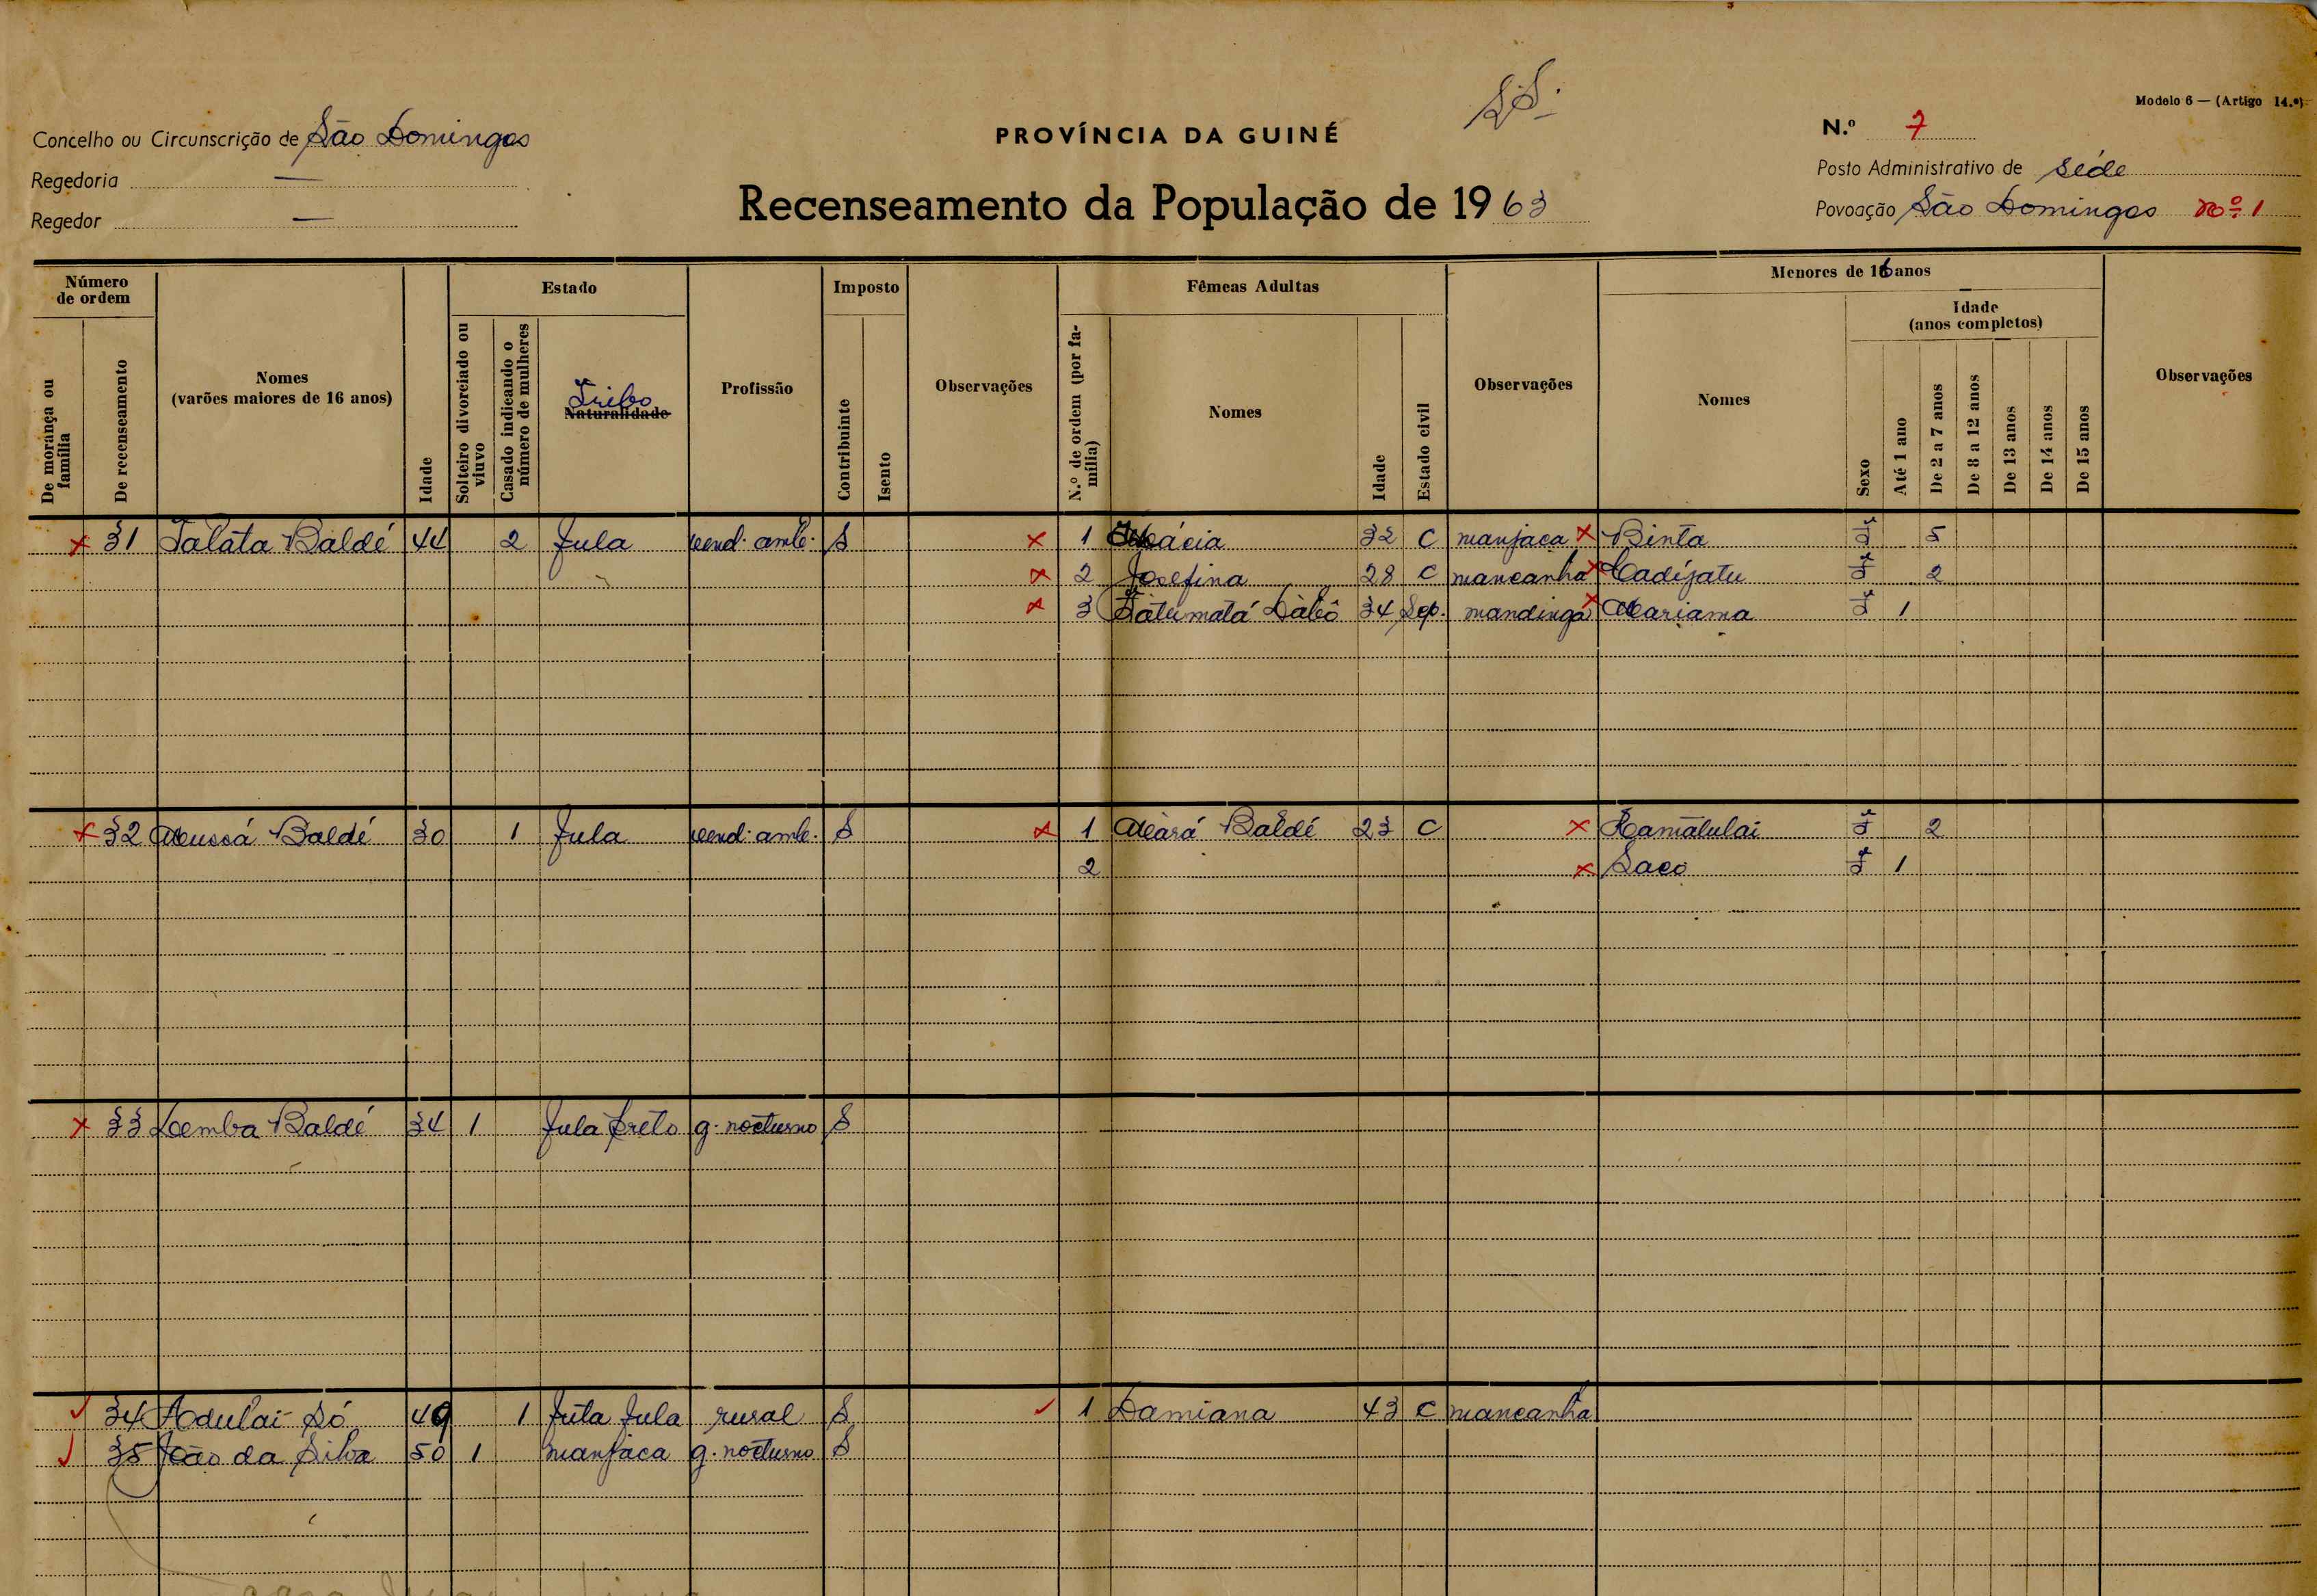 S.S.
Modelo 6 — (Artigo 14.º)
Concelho ou Circunscrição de São Domingos
PROVÍNCIA DA GUINÉ
N.º 7
Regedoria —
Posto Administrativo de Séde
Regedor —
Recenseamento da População de 1963
Povoação São Domingos nº 1
Número de ordem
De morança ou família
De recenseamento
Nomes
(varões maiores de 16 anos)
Idade
Estado
Solteiro divorciado ou viuvo
Casado indicando o número de mulheres
Tribo
Naturalidade
Profissão
Imposto
Contribuinte
Isento
Observações
Fêmeas Adultas
N.º de ordem (por família)
Nomes
Idade
Estado civil
Observações
Menores de 16 anos
Nomes
Sexo
Idade
(anos completos)
Até 1 ano
De 2 a 7 anos
De 8 a 12 anos
De 13 anos
De 14 anos
De 15 anos
Observações
x 31 Talata Baldé 44 2 fula vend. amb. S x 1 32 C manjaca x Binta F 5
x 2 Josefina 28 C mancanha x Cadijatu F 2
x 3 Fatumatá Dabó 34 Sep. mandinga x Mariama F 1
x 32 Mussá Baldé 30 1 fula vend. amb. S x 1 Baldé 23 C x Ramatulai F 2
2 x Saco F 1
x 33 Demba Baldé 34 1 fula preto g. nocturno S
✓ 34 Adulai Só 49 1 futa fula rural S ✓ 1 Damiana 43 C mancanha
✓ 35 João da Silva 50 1 manjaca g. nocturno S